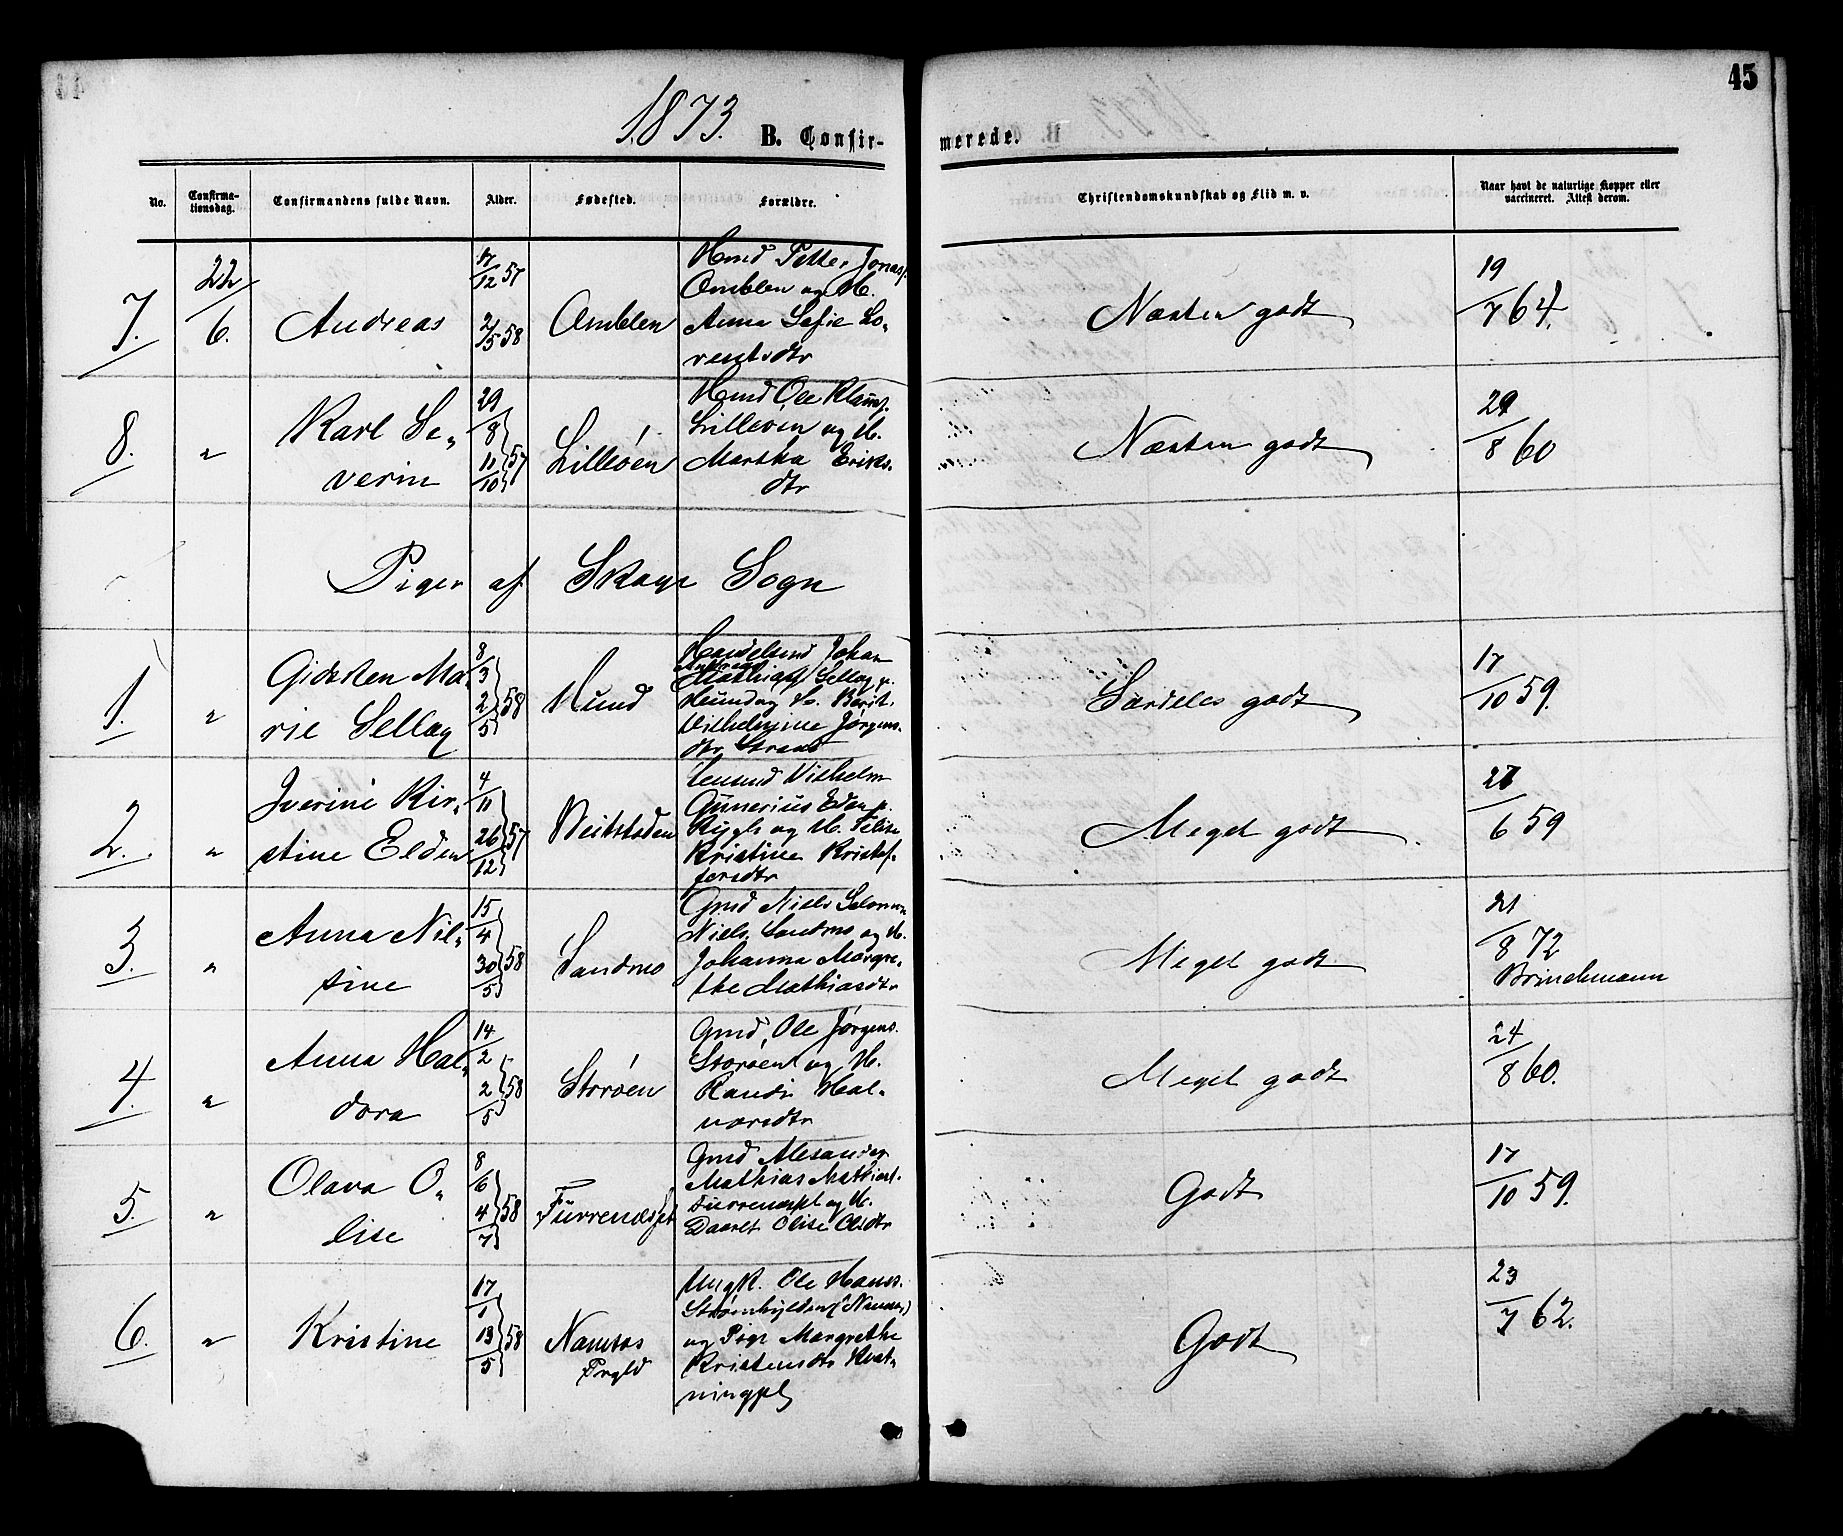 45
1873.
B. Confirmerede.
No.
Confirmationsdag.
Confirmandens fulde Navn.
Alder.
Fødested.
Forældre.
Christendomskundskab og Flid m. v.
Naar havt de naturlige Kopper eller vaccineret. Attest derom.
7.
22/6.
Andreas
17/12 57
2/5 58
Omblen
Hmd Petter Jonas.
Omblen og H.
Anna Sofie Lo-
rentsdtr
Næsten godt
19/7 64.
8.
"
Karl Se-
verin
29/8
11/10
57
Lilleøen
Hmd Ole Klaus.
Lilleøen og H.
Martha Eriks-
dtr
Næsten godt
29/8 60
Piger af Skage Sogn
1.
"
Gidsken Ma-
rie Sellæg
8/3
2/5
58
Hund
Handelsmd Johan
Mathias Sellæg p.
Hund og H. Berit.
Vilhelmine Jørgens-
dtr Strand
Særdeles godt
17/10 59.
2.
"
Iverine Kir-
stine Elden
4/11
26/12
57
Beitstaden
Vilhelm
Gunerius Elden p.
og H.
Kristine Kristof-
fersdtr
Meget godt
6 59
3.
"
Anna Nil-
sine
15/4
30/5
58
Sandmo
Gmd Niels Salomon
Niels. Sandmo og H.
Johanna Margre-
the Mathiasdtr
Meget godt
21/8 72
Brinchmann
4.
"
Anna Hal-
dora
14/2
2/5
58
Storøen
Gmd Ole Jørgens.
Storøen og H.
Randi Hal-
vorsdtr
Meget godt
24/8 60.
5.
"
Olava O-
lise
8/6
4/7
58
Furrenæsset
Gmd Alexander
Mathias Mathias.
og H.
Daaret Olise Olsdtr
Godt
17/10 59.
6.
"
Kristine
17/1
13/5
58
Namsos
Prgld
Ungk. Ole Hans.
(Namsos)
og Pige Margrethe
Kristensdtr Kvat-
ningpl
Godt
23/7 62.